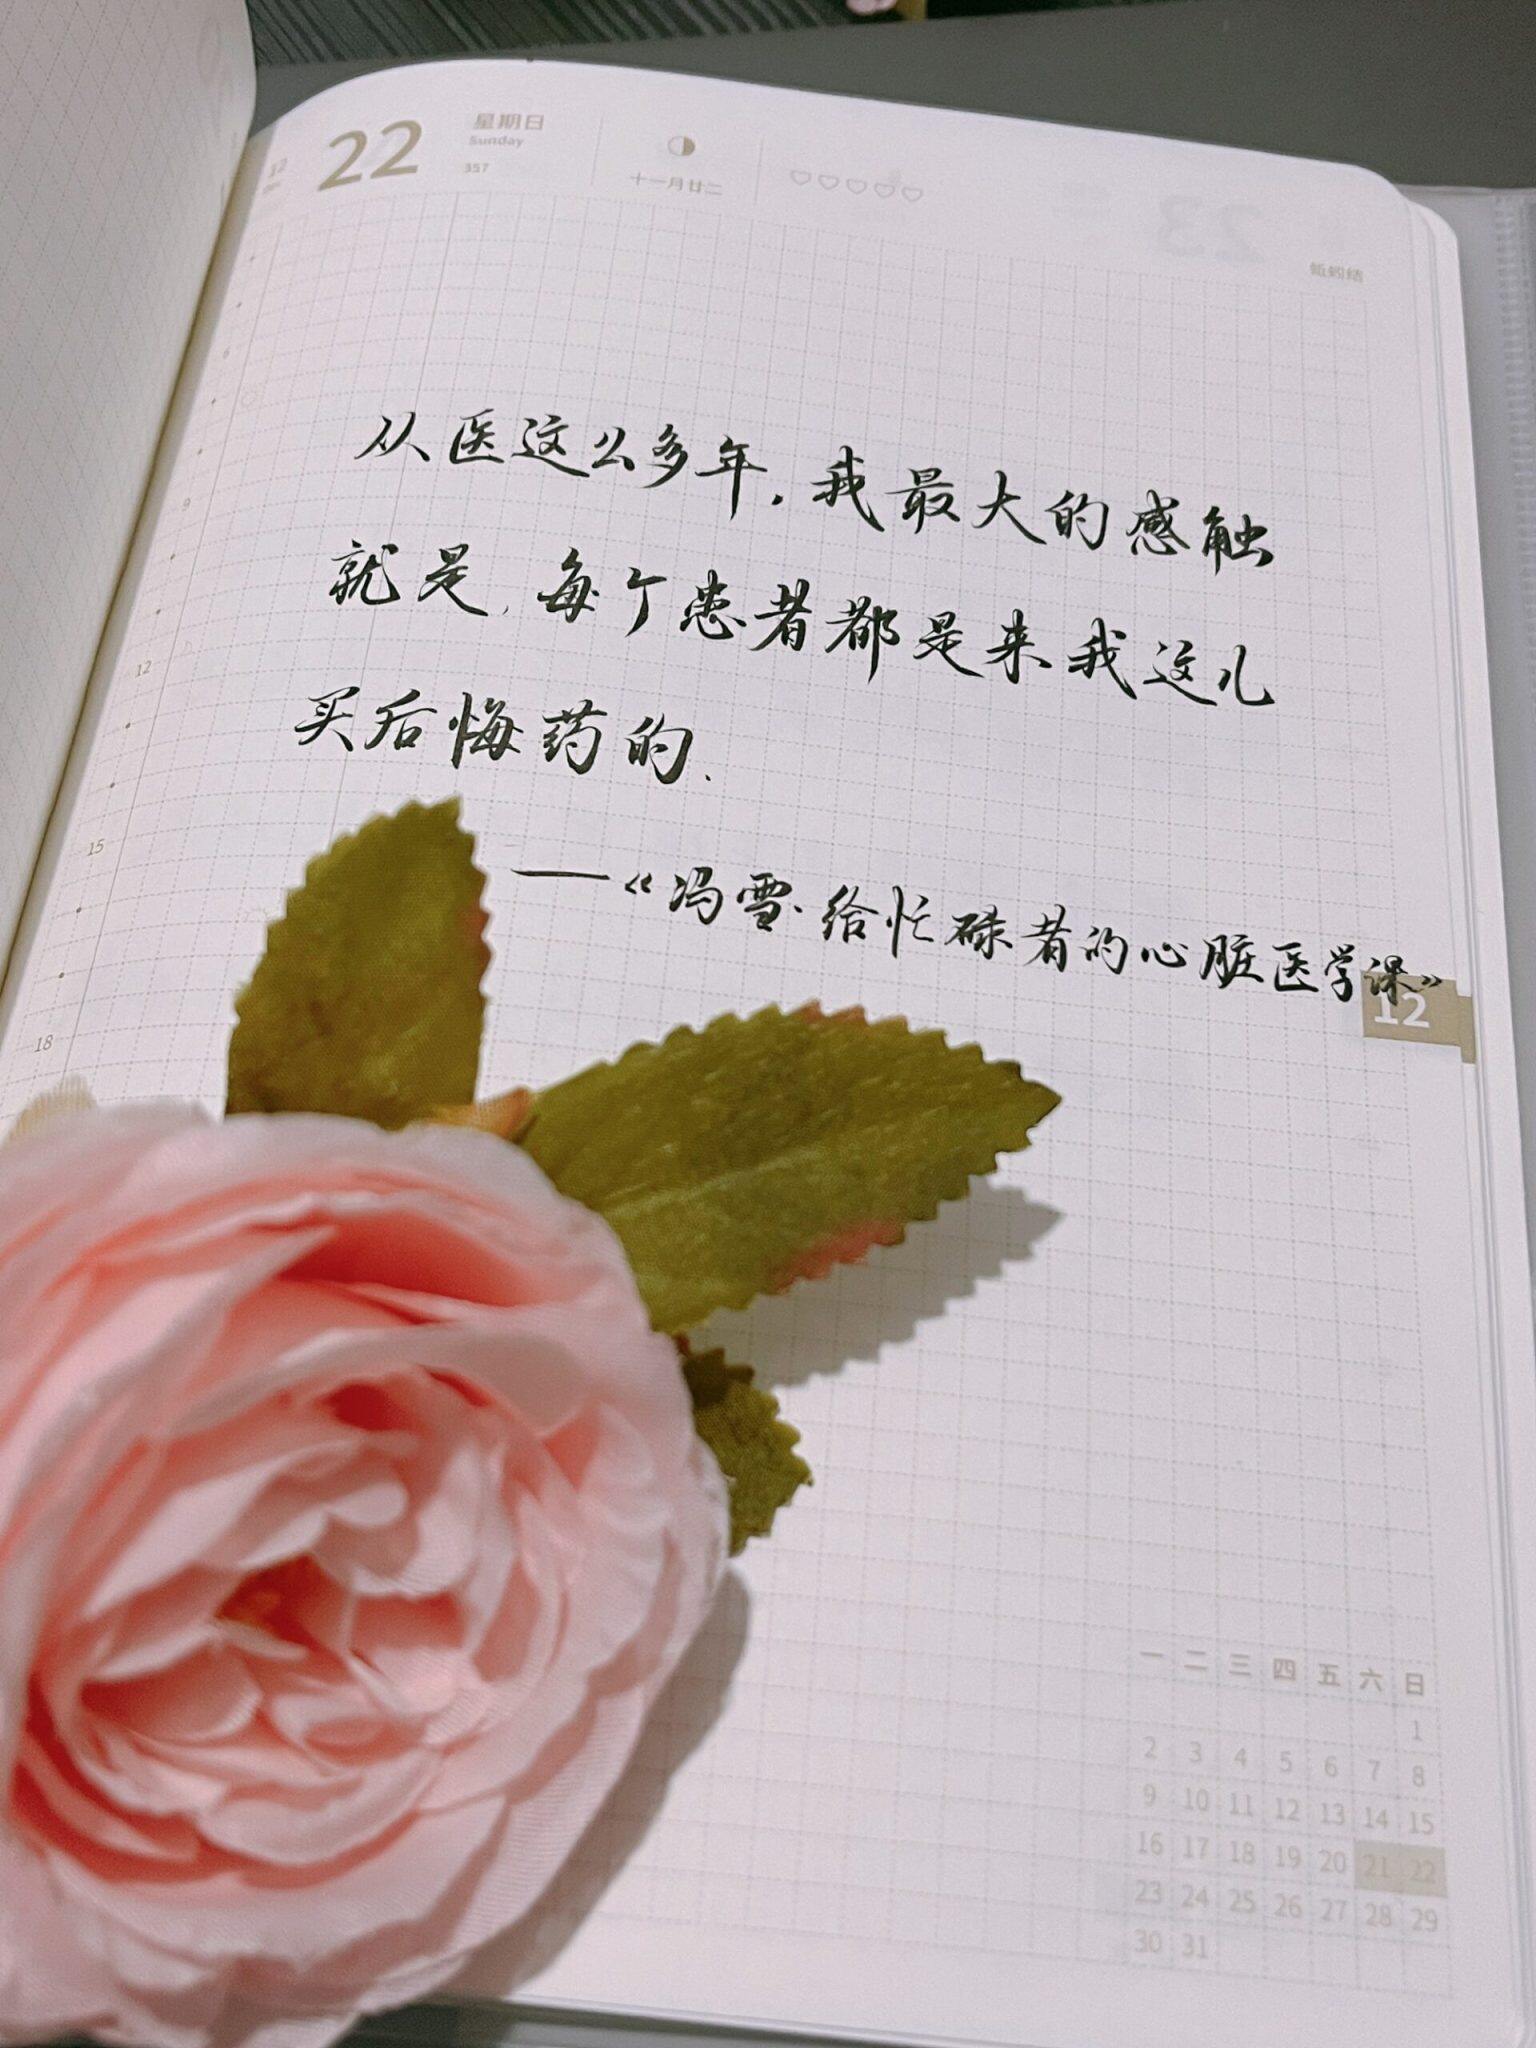 22
星期日
Sunday
357
12
十一月廿二
23
蚯蚓结
从医这么多年，我最大的感触
就是，每个患者都是来我这儿
买后悔药的。
——《冯雪·给忙碌者的心脏医学课》
12
6
9
12
15
18
一 二 三 四 五 六 日
1
2 3 4 5 6 7 8
9 10 11 12 13 14 15
16 17 18 19 20 21 22
23 24 25 26 27 28 29
30 31